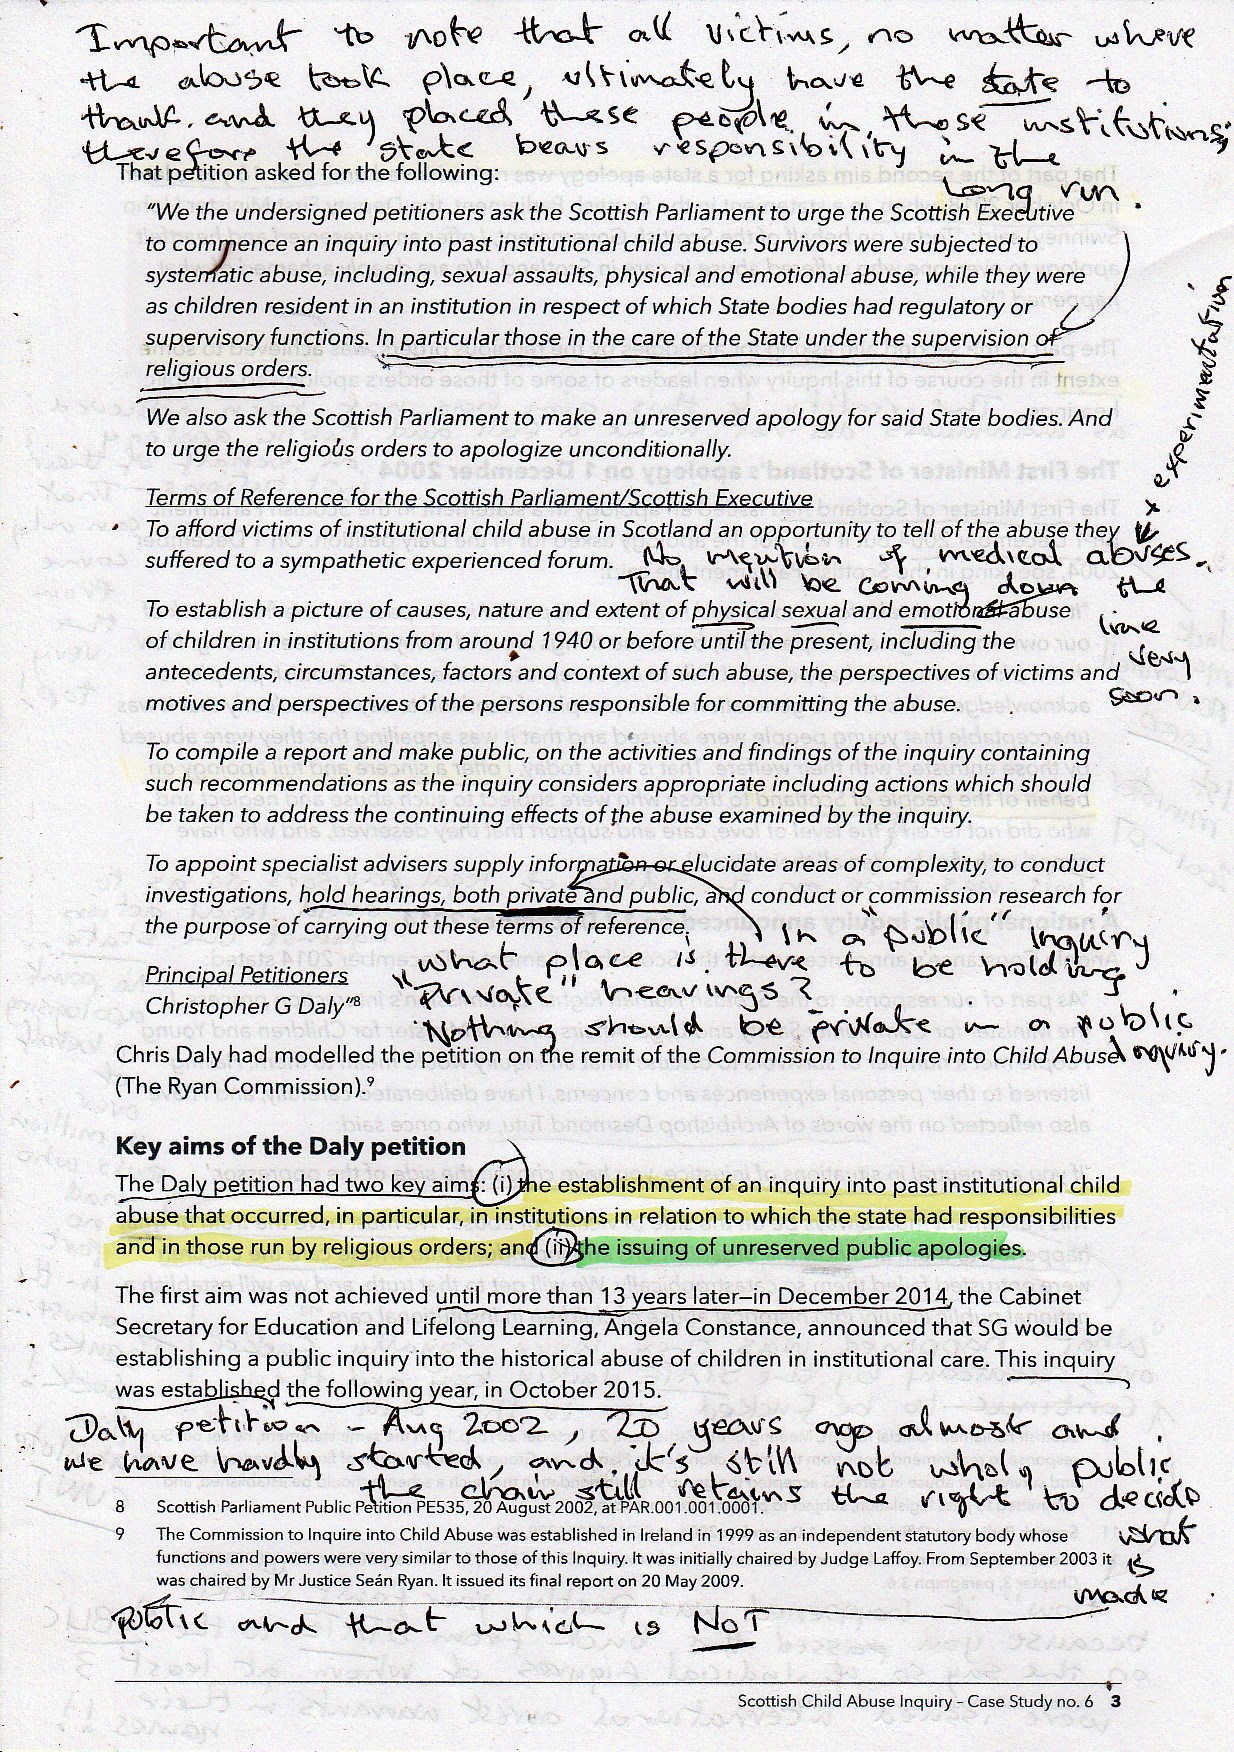 Important to note that all victims, no matter where
the abuse took place, ultimately have the state to
thank. and they placed these people in those institutions;
therefore the state bears responsibility in the
long run.
That petition asked for the following:
“We the undersigned petitioners ask the Scottish Parliament to urge the Scottish Executive
to commence an inquiry into past institutional child abuse. Survivors were subjected to
systematic abuse, including, sexual assaults, physical and emotional abuse, while they were
as children resident in an institution in respect of which State bodies had regulatory or
supervisory functions. In particular those in the care of the State under the supervision of
religious orders.
We also ask the Scottish Parliament to make an unreserved apology for said State bodies. And
to urge the religious orders to apologize unconditionally.
Terms of Reference for the Scottish Parliament/Scottish Executive
To afford victims of institutional child abuse in Scotland an opportunity to tell of the abuse they
suffered to a sympathetic experienced forum.
x experimentation
No mention of medical abuses.
That will be coming down the
line
very
soon.
To establish a picture of causes, nature and extent of physical sexual and emotional abuse
of children in institutions from around 1940 or before until the present, including the
antecedents, circumstances, factors and context of such abuse, the perspectives of victims and
motives and perspectives of the persons responsible for committing the abuse.
To compile a report and make public, on the activities and findings of the inquiry containing
such recommendations as the inquiry considers appropriate including actions which should
be taken to address the continuing effects of the abuse examined by the inquiry.
To appoint specialist advisers supply information or elucidate areas of complexity, to conduct
investigations, hold hearings, both private and public, and conduct or commission research for
the purpose of carrying out these terms of reference.
In a "public" inquiry
what place is there to be holding
"Private" hearings?
Nothing should be private in a public
inquiry.
Principal Petitioners
Christopher G Daly”8
Chris Daly had modelled the petition on the remit of the Commission to Inquire into Child Abuse
(The Ryan Commission).9
Key aims of the Daly petition
The Daly petition had two key aims: (i) the establishment of an inquiry into past institutional child
abuse that occurred, in particular, in institutions in relation to which the state had responsibilities
and in those run by religious orders; and (ii) the issuing of unreserved public apologies.
The first aim was not achieved until more than 13 years later–in December 2014, the Cabinet
Secretary for Education and Lifelong Learning, Angela Constance, announced that SG would be
establishing a public inquiry into the historical abuse of children in institutional care. This inquiry
was established the following year, in October 2015.
Daly petition – Aug 2002, 20 years ago almost and
we have hardly started, and it's still not wholy public,
the chair still retains the right to decide
what
is
made
public and that which is NOT
8 Scottish Parliament Public Petition PE535, 20 August 2002, at PAR.001.001.0001.
9 The Commission to Inquire into Child Abuse was established in Ireland in 1999 as an independent statutory body whose
functions and powers were very similar to those of this Inquiry. It was initially chaired by Judge Laffoy. From September 2003 it
was chaired by Mr Justice Seán Ryan. It issued its final report on 20 May 2009.
Scottish Child Abuse Inquiry – Case Study no. 6 3